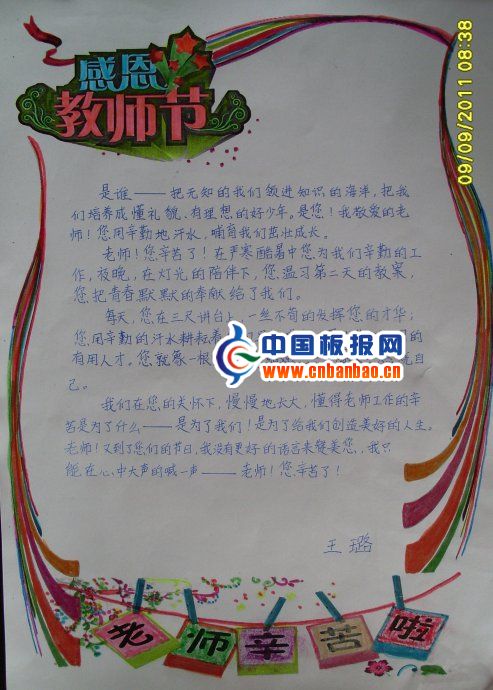 09/09/2011 08:38
感恩
教师节
是谁——把无知的我们领进知识的海洋,把我
们培养成懂礼貌、有理想的好少年。是您!我敬爱的老
师!您用辛勤地汗水,哺育我们茁壮成长。
老师!您辛苦了!在严寒酷暑中您为我们辛勤的工
作,夜晚,在灯光的陪伴下,您温习第二天的教案,
您把青春默默的奉献给了我们。
每天,您在三尺讲台上,一丝不苟的发挥您的才华;
您用辛勤的汗水耕耘着
的
中国板报网
www.cnbanbao.cn
有用人才。您就象一根
己。
我们在您的关怀下,慢慢地长大,懂得老师工作的辛
苦是为了什么——是为了我们!是为了给我们创造美好的人生。
老师!又到了您们的节日,我没有更好的语言来赞美您,我只
能在心中大声的喊一声——老师!您辛苦了!
王璐
老师辛苦啦